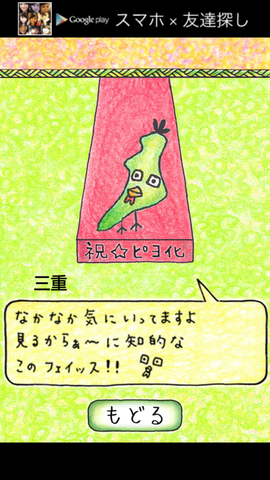 Google play スマホ × 友達探し
祝☆ピヨ化
三重
なかなか気にいってますよ
見るからぁ〜に知的な
このフェイッス!!
もどる